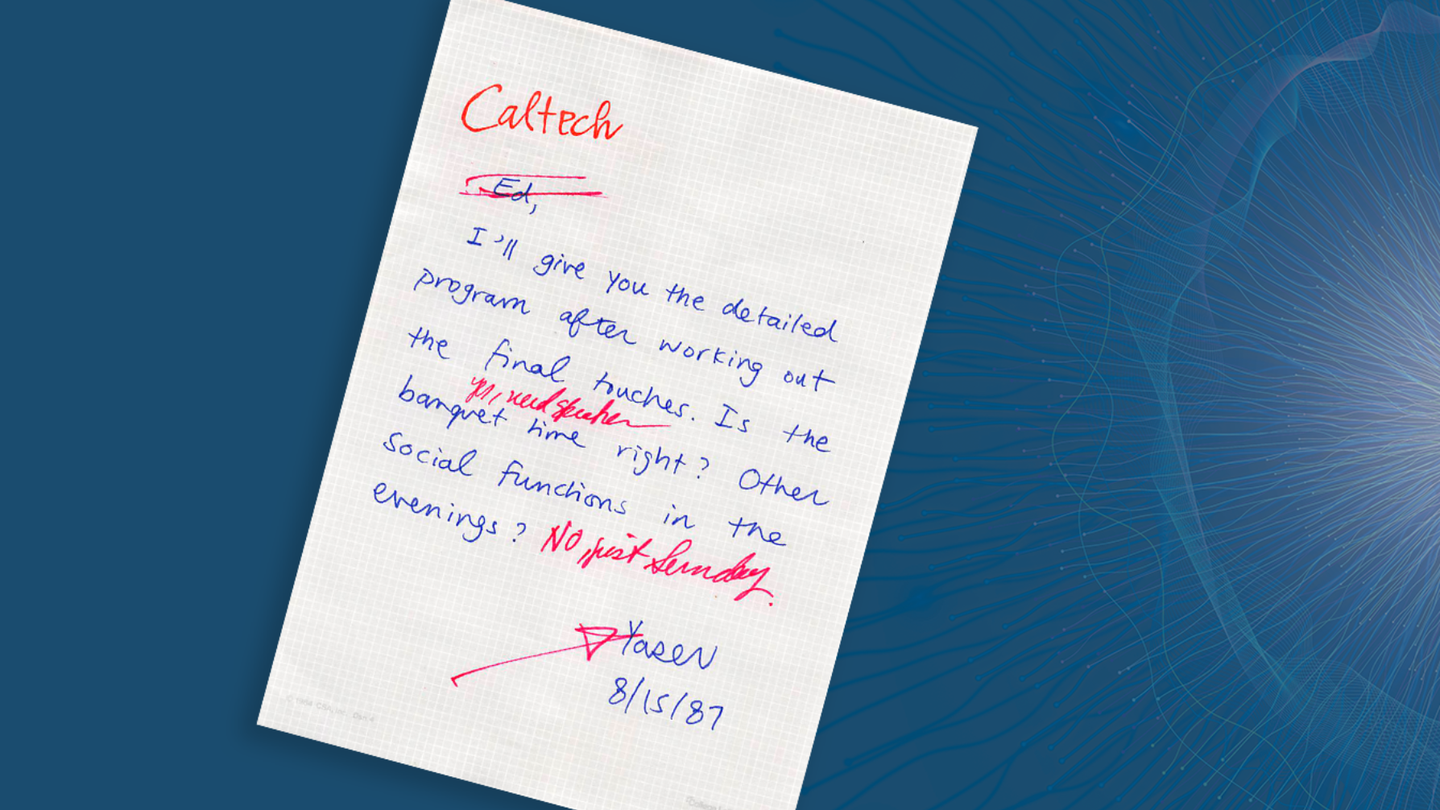 Caltech
Ed,
I'll give you the detailed
program after working out
the final touches. Is the
yes, need speaker
banquet time right? Other
social functions in the
evenings? No, just Sunday.
Yaser
8/15/87